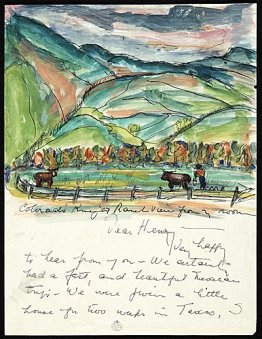 Colorado Ranch view from my room
Dear Henry
Very happy
to hear from you - We actually
had a fast, and beautiful Mexican
trip - We were given a little
house for two weeks in Taxco, S